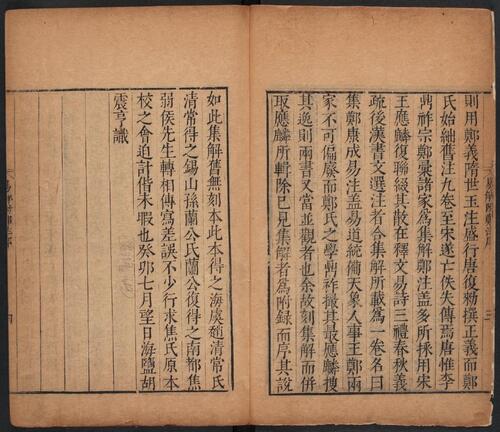 則用鄭義隋世王注盛行唐復勑撰正義而鄭
氏始絀舊注九卷至宋遂亡佚失傳焉唐惟李
鼎祚宗鄭彙諸家爲集解鄭注盖多所採用宋
王應麟復聯綴其散在釋文易詩三禮春秋義
疏後漢書文選注者合集解所載爲一卷名曰
集鄭康成易注盖易道統備天象人事王鄭兩
家不可偏廢而鄭氏之學鼎祚撤其最應麟捜
其逸則兩書又當並觀者也余故刻集解而併
取應麟所輯除已見集解者爲附録而序其說
如此集解舊無刻本此本得之海虞趙清常氏
清常得之錫山孫蘭公氏蘭公復得之南都焦
弱侯先生轉相傳寫差誤不少行求焦氏原本
校之會迫計偕未暇也癸卯七月望日海鹽胡
震亨識
三
四